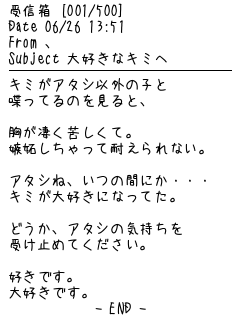 受信箱 [001/500]
Date 06/26 13:51
From 、
Subject 大好きなキミへ
キミがアタシ以外の子と
喋ってるのを見ると、
胸が凄く苦しくて。
嫉妬しちゃって耐えられない。
アタシね、いつの間にか・・・
キミが大好きになってた。
どうか、アタシの気持ちを
受け止めてください。
好きです。
大好きです。
- END -